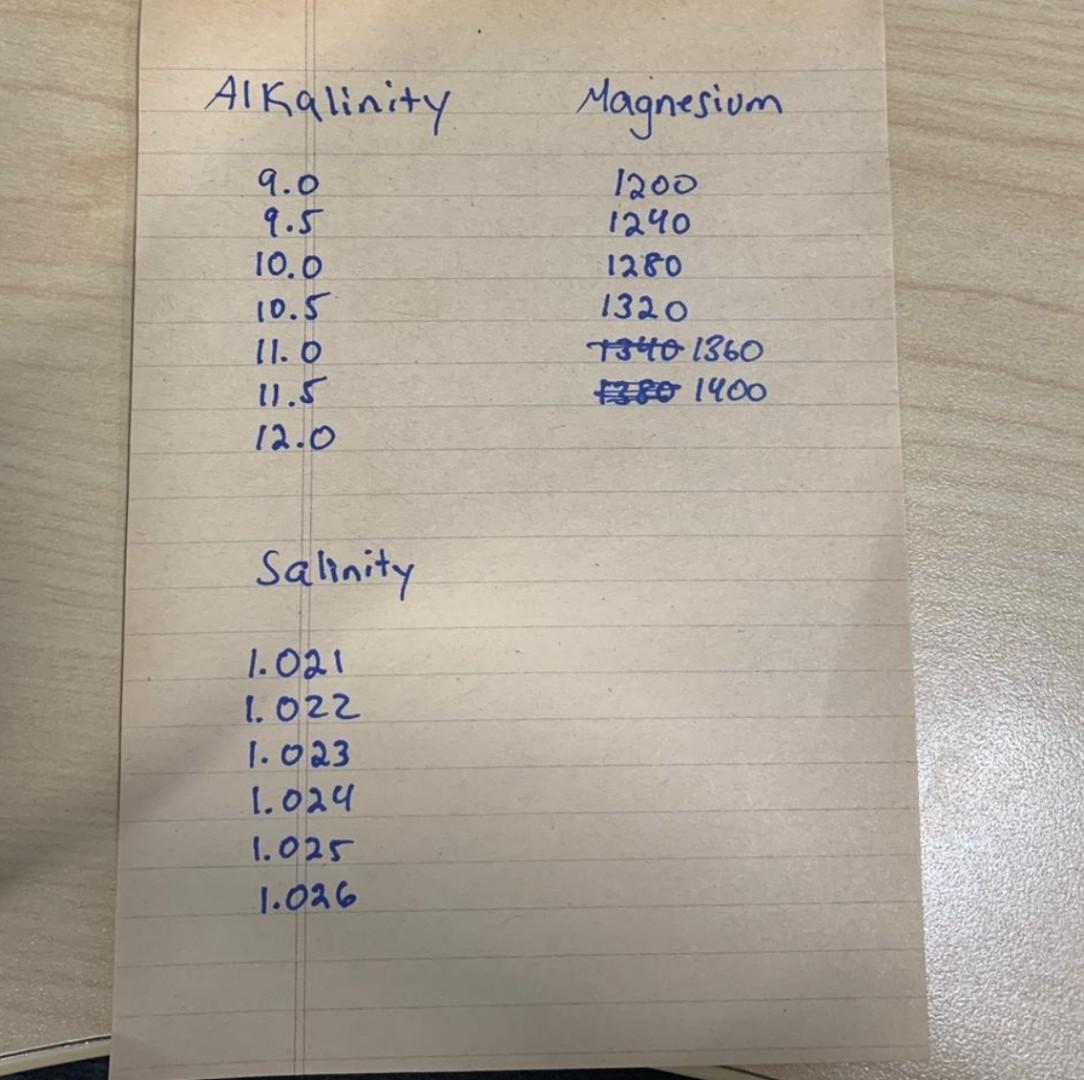 Alkalinity Magnesium
9.0 1200
9.5 1240
10.0 1280
10.5 1320
11.0 1340 1360
11.5 1380 1400
12.0
Salinity
1.021
1.022
1.023
1.024
1.025
1.026